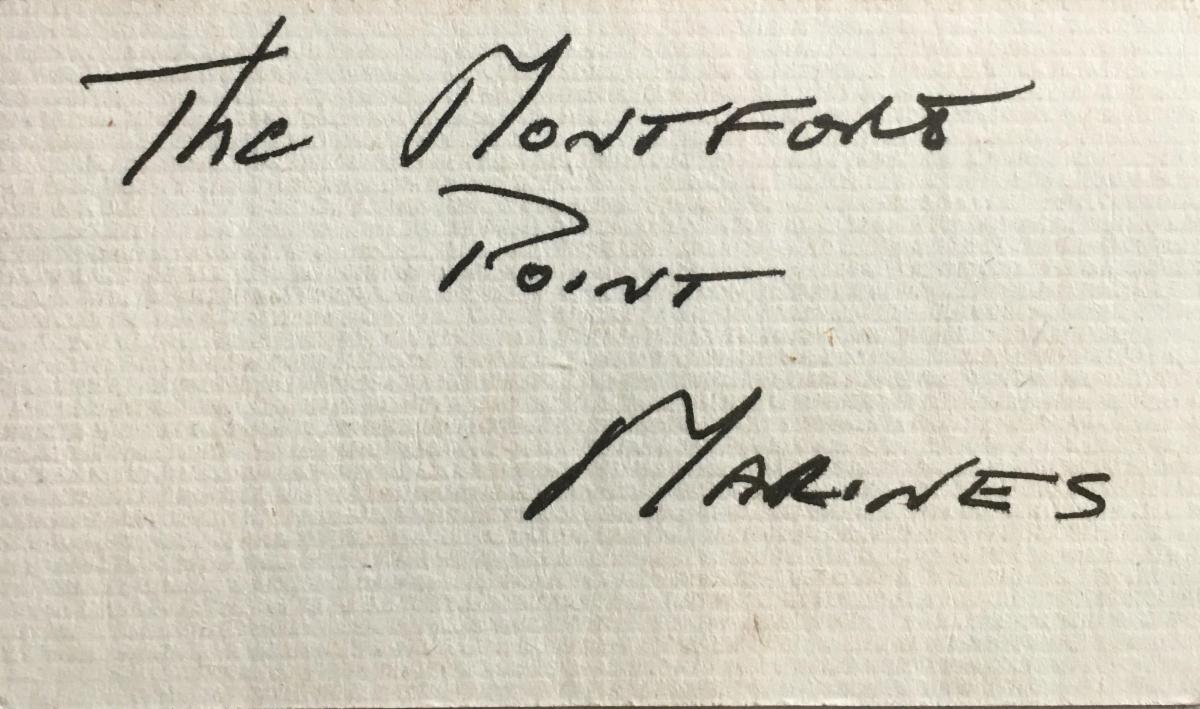 The MONTFORT
POINT
MARINES